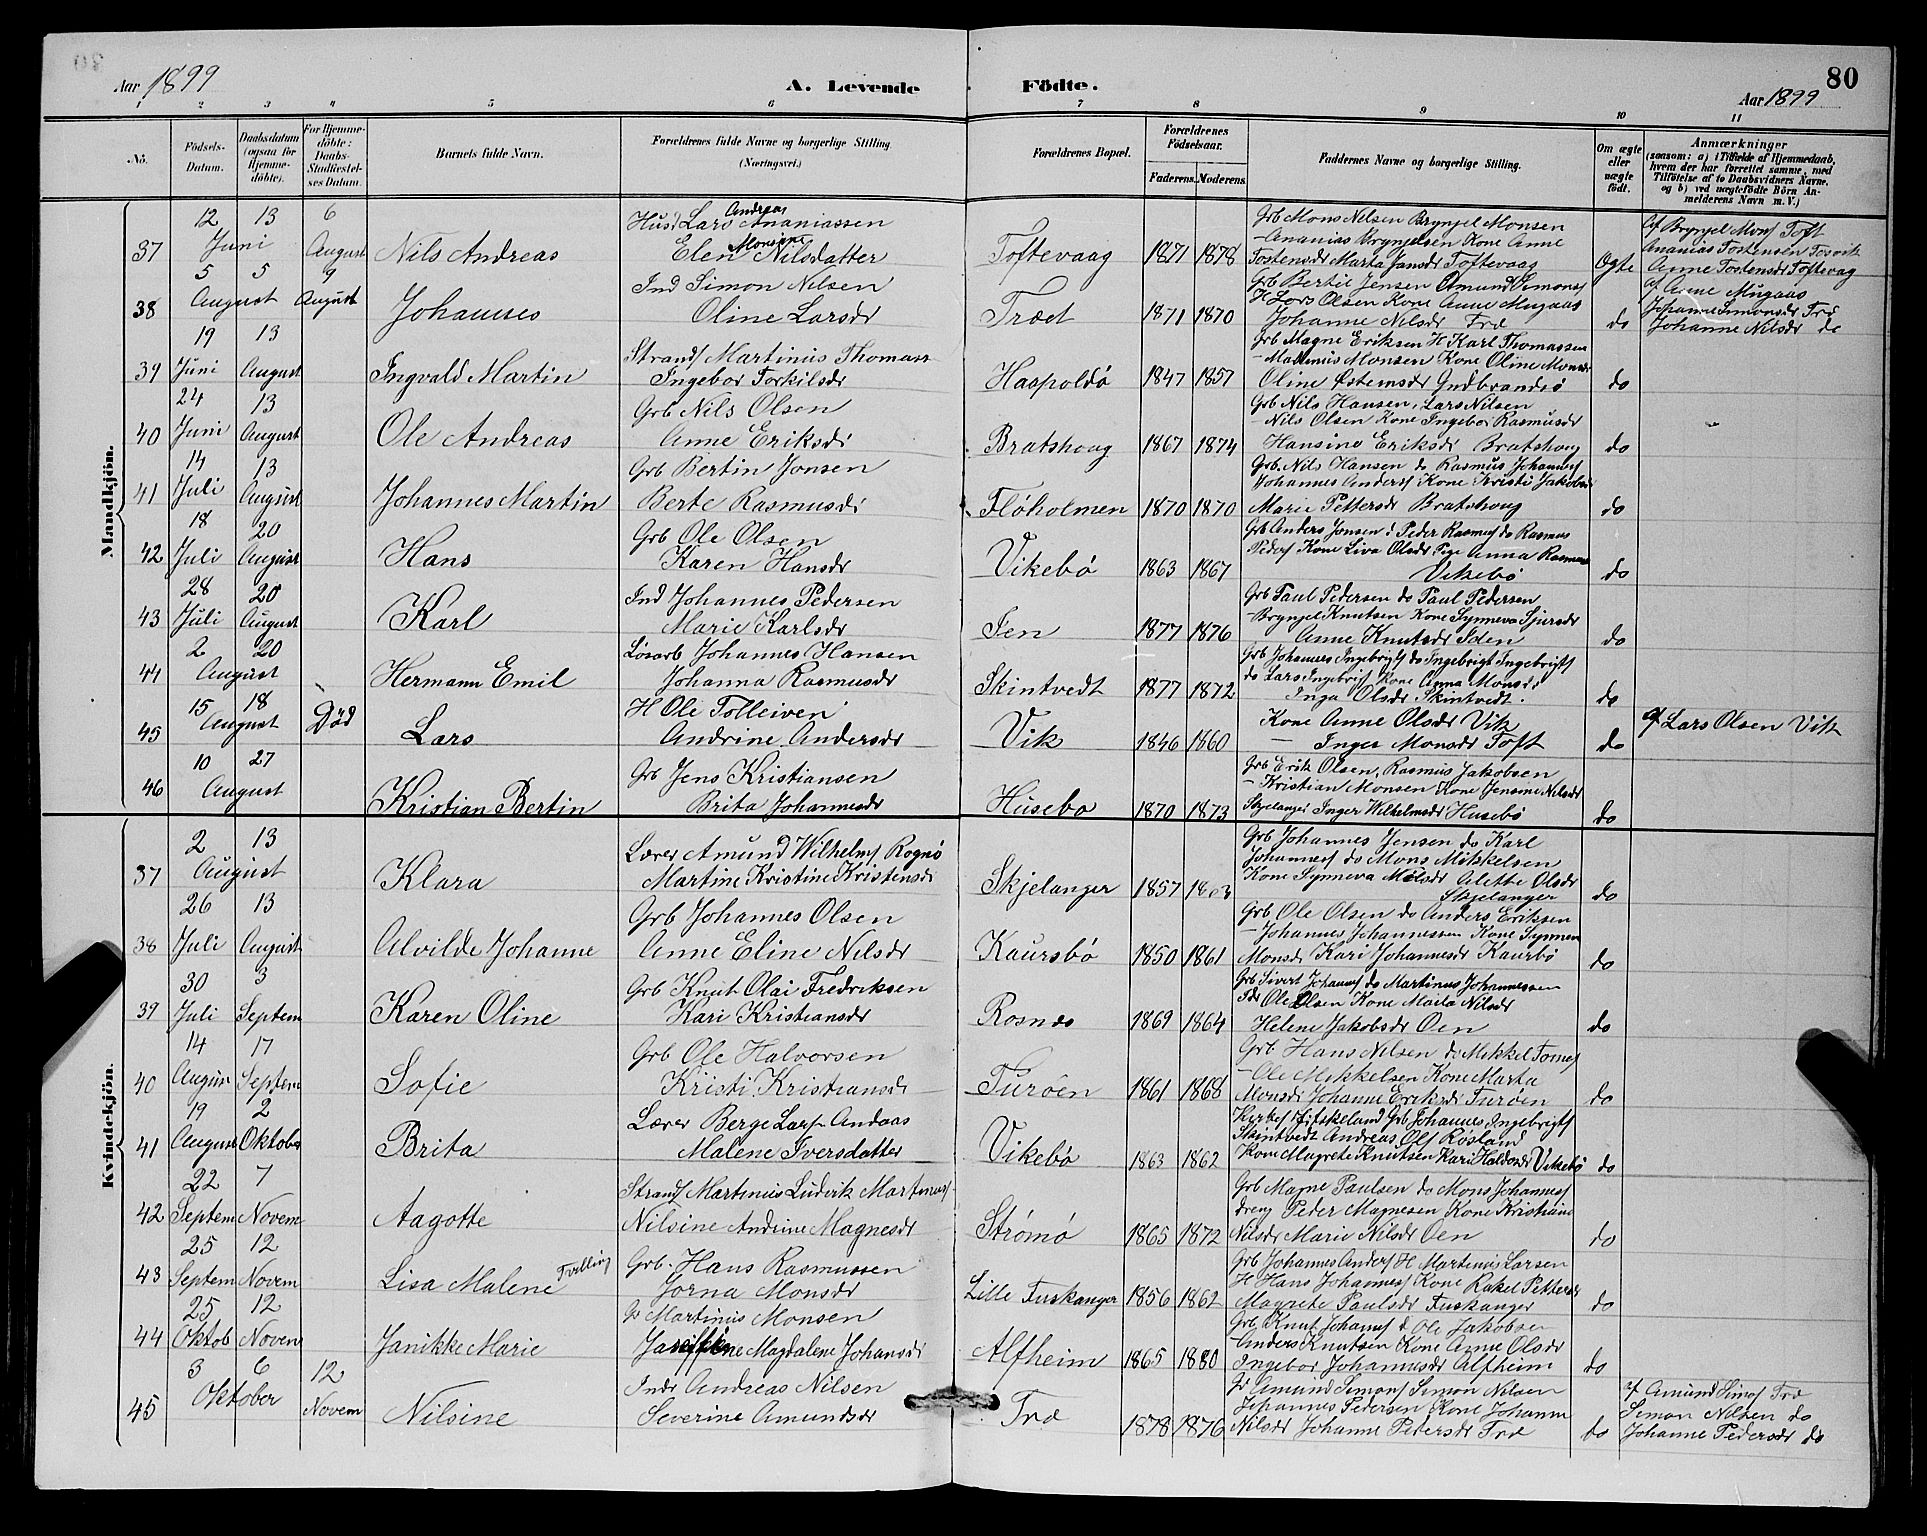 Aar 1899
A. Levende
Födte.
80
Aar 1899
1 2 3 4 5 6 7 8 9 10 11
No.
Födsels-Datum.
Daabsdatum (ogsaa for Hjemme-döbte).
For Hjemme-döbte: Daabs-Stadfæstel-ses Datum.
Barnets fulde Navn.
Forældrenes fulde Navne og borgerlige Stilling.
(Næringsvei.)
Forældrenes Bopæl.
Forældrenes Födselsaar.
Faderens. Moderens.
Faddernes Navne og borgerlige Stilling.
Om ægte eller uægte födt.
Anmærkninger
(saasom: a) i Tilfælde af Hjemmedaab,
hvem der har forrettet samme, med
Tilföielse af to Daabsvidners Navne.
og b) ved uægtefödte Börn An-
melderens Navn m. V.)
Mandkjön.
12 13 6
Andreas
Husd Lars Ananiassen
Grb Mons Nilsen Bryngel Monsen
Af Bryngel Mons Toft
Juni August
Monsine
- Ananias Bryngelsen Kone Anne
37 Nils Andreas Elen Nilsdatter Toftevaag 1871 1878 Tostensdr Marta Jansdr Toftevaag Ogte
Anne Tostensdr Toftevag
5 5 9
Ind Simon Nilsen
Grb Bertil Jensen Amund Simons
Af Anne Mugaas
August August
H Lars Olsen Kone Anne Mugaas
Johanne Simonsdr Træ
38 Johannes Oline Larsdr Træet 1871 1870 Johanne Nilsdr Træ do Johanne Nilsdr do
19 13
Strands Martinus Thomass
Grb Magne Eriksen H Karl Thomassen
- Martinus Monsen Kone Oline Monsdr
39 Juni August Ingvald Martin Ingebor Torkilsdr Haspoldø 1847 1857 Oline Østensdr Gudbrandsø do
24 13
Grb Nils Olsen
Grb Nils Hansen, Lars Nilsen
- Nils Olsen Kone Ingebor Rasmusdr
40 Juni August Ole Andreas Anne Eriksdr Bratshoug 1867 1874 Hansine Eriksdr Bratshoug do
14 13
Grb Bertin Jonsen
Grb. Nils Hansen do Rasmus Johannes
Johannes Anders Kone Kristi Jakobsdr
41 Juli August Johannes Martin Berte Rasmusdr Fløholmen 1870 1870 Marie Pettersdr Bratshoug do
18 20
Grb Ole Olsen
Grb Anders Jonsen d Peder Rasmus do Rasmus
Peders Kone Liva Olsdr Pige Anna Rasmus
42 Juli August Hans Karen Hansdr Vikebø 1863 1867 Vikebø do
28 20
Ind Johannes Pedersen
Grb Paul Pedersen do Paul Pedersen
- Bryngel Knutsen Kone Synneva Sjursdr
43 Juli August Karl Marie Karlsdr Ien 1877 1876 Anne Knutsdr Iden do
2 20
Løsarb Johannes Hansen
Grb Johannes Ingebrigts do Ingebrigt Ingebrigts
do Lars Ingebris Kone Anna Monsdr
44 August Hermann Emil Johanna Rasmusdr Skintvedt 1877 1872 Inga Olsdr Skintvedt. do
15 18
H Ole Tolleiven
Kone Anne Olsdr Vik
Af Lars Olsen Vik
45 August Død Lars Andrine Andersdr Vik 1846 1860 - Inger Monsdr Toft do
10 27
Grb Jens Kristiansen
Grb Erik Olsen, Rasmus Jakobsen
- Kristian Monsen Kone Jensine Nilsdr
46 August Kristian Bertin Brita Johannesdr Husebø 1870 1873 Skjelanger Inger Wilhelmsdr Husebø do
Kvindekjön.
2 13
Lærer Amund Wilhelms Rognø
Grb Johannes Jensen do Karl
Johannes do Mons Mikkelsen
37 August Klara Martine Kristine Kristensdr Skjelanger 1857 Kone Synneva Olette Olsdr
Skjelanger do
26 13
Grb Johannes Olsen
Grb Ole Olsen do Anders Eriksen
- Johannes Johannessen Kone Synneva
38 Juli August Alvilde Johanne Anne Eline Nilsdr Kaursbø 1850 1861 Monsdr Kari Johannesdr Kaursbø do
30 3
Grb Knut Olai Fredriksen
Grb Sivert Johannes do Martinus Johannessen
Ole Olsen Kone Nilsdr
39 Juli Septem Karen Oline Kari Kristiansdr Rosnes 1869 1864 Helene Jakobsdr Oen do
14 17
Grb Ole Halvorsen
Grb Hans Nilsen do Mikkel Tomes
- Ole Mikkelsen Kone Marta
40 August Septem Sofie Kristi Kristiansdr Turøen 1861 1868 Monsdr Johanne Eriksdr Turøen do
19 2
Lærer Berge Lars Andaas
Kirkes Fitskeland Grb Johannes Ingebrigts
Skintvedt Andreas Ols Røsland
41 August Oktober Brita Malene Iversdatter Vikebø 1863 1862 Kone Magrete Knutsen Kari Haldorsdr Vikebø do
22 7
Strands Martinus Ludvik Martinus
Grb Magne Paulsen do Mons Johannes
dreng Peder Magnesen Kone Kristiane
42 Septem Novem Aagotte Nilsine Andrine Magnesdr Strømø 1865 1872 Nilsdr Marie Nilsdr Oen do
25 12
Grb. Hans Rasmussen
Grb Johannes Anders H Martinus Larsen
Tvilling
H Hans Johannes Kone Rakel Pettersdr
43 Septem Novem Lisa Malene Jorna Monsdr Lille Turskanger 1856 1862 Magrete Paulsdr Turskanger do
25 12
G Martinus Monsen
Grb Knut Johannes d Ole Jakobsen
- Anders Knutsen Kone Anne Olsdr
44 Oktob Novem Janikke Marie Magdalene Johansdr Alfheim 1865 1880 Ingebor Johannesdr Alfheim do
3 6 12
Indr Andreas Nilsen
Gr Amund Simons Simon Nilsen
af Amund Simos Træ
Oktober
Johannes Pedersen Kone Johanne
Simon Nilsen do
45 Novem Nilsine Severine Amundsdr Træ 1878 1876 Nilsdr Johanne Pedersdr Træ do Johanne Pedersdr do